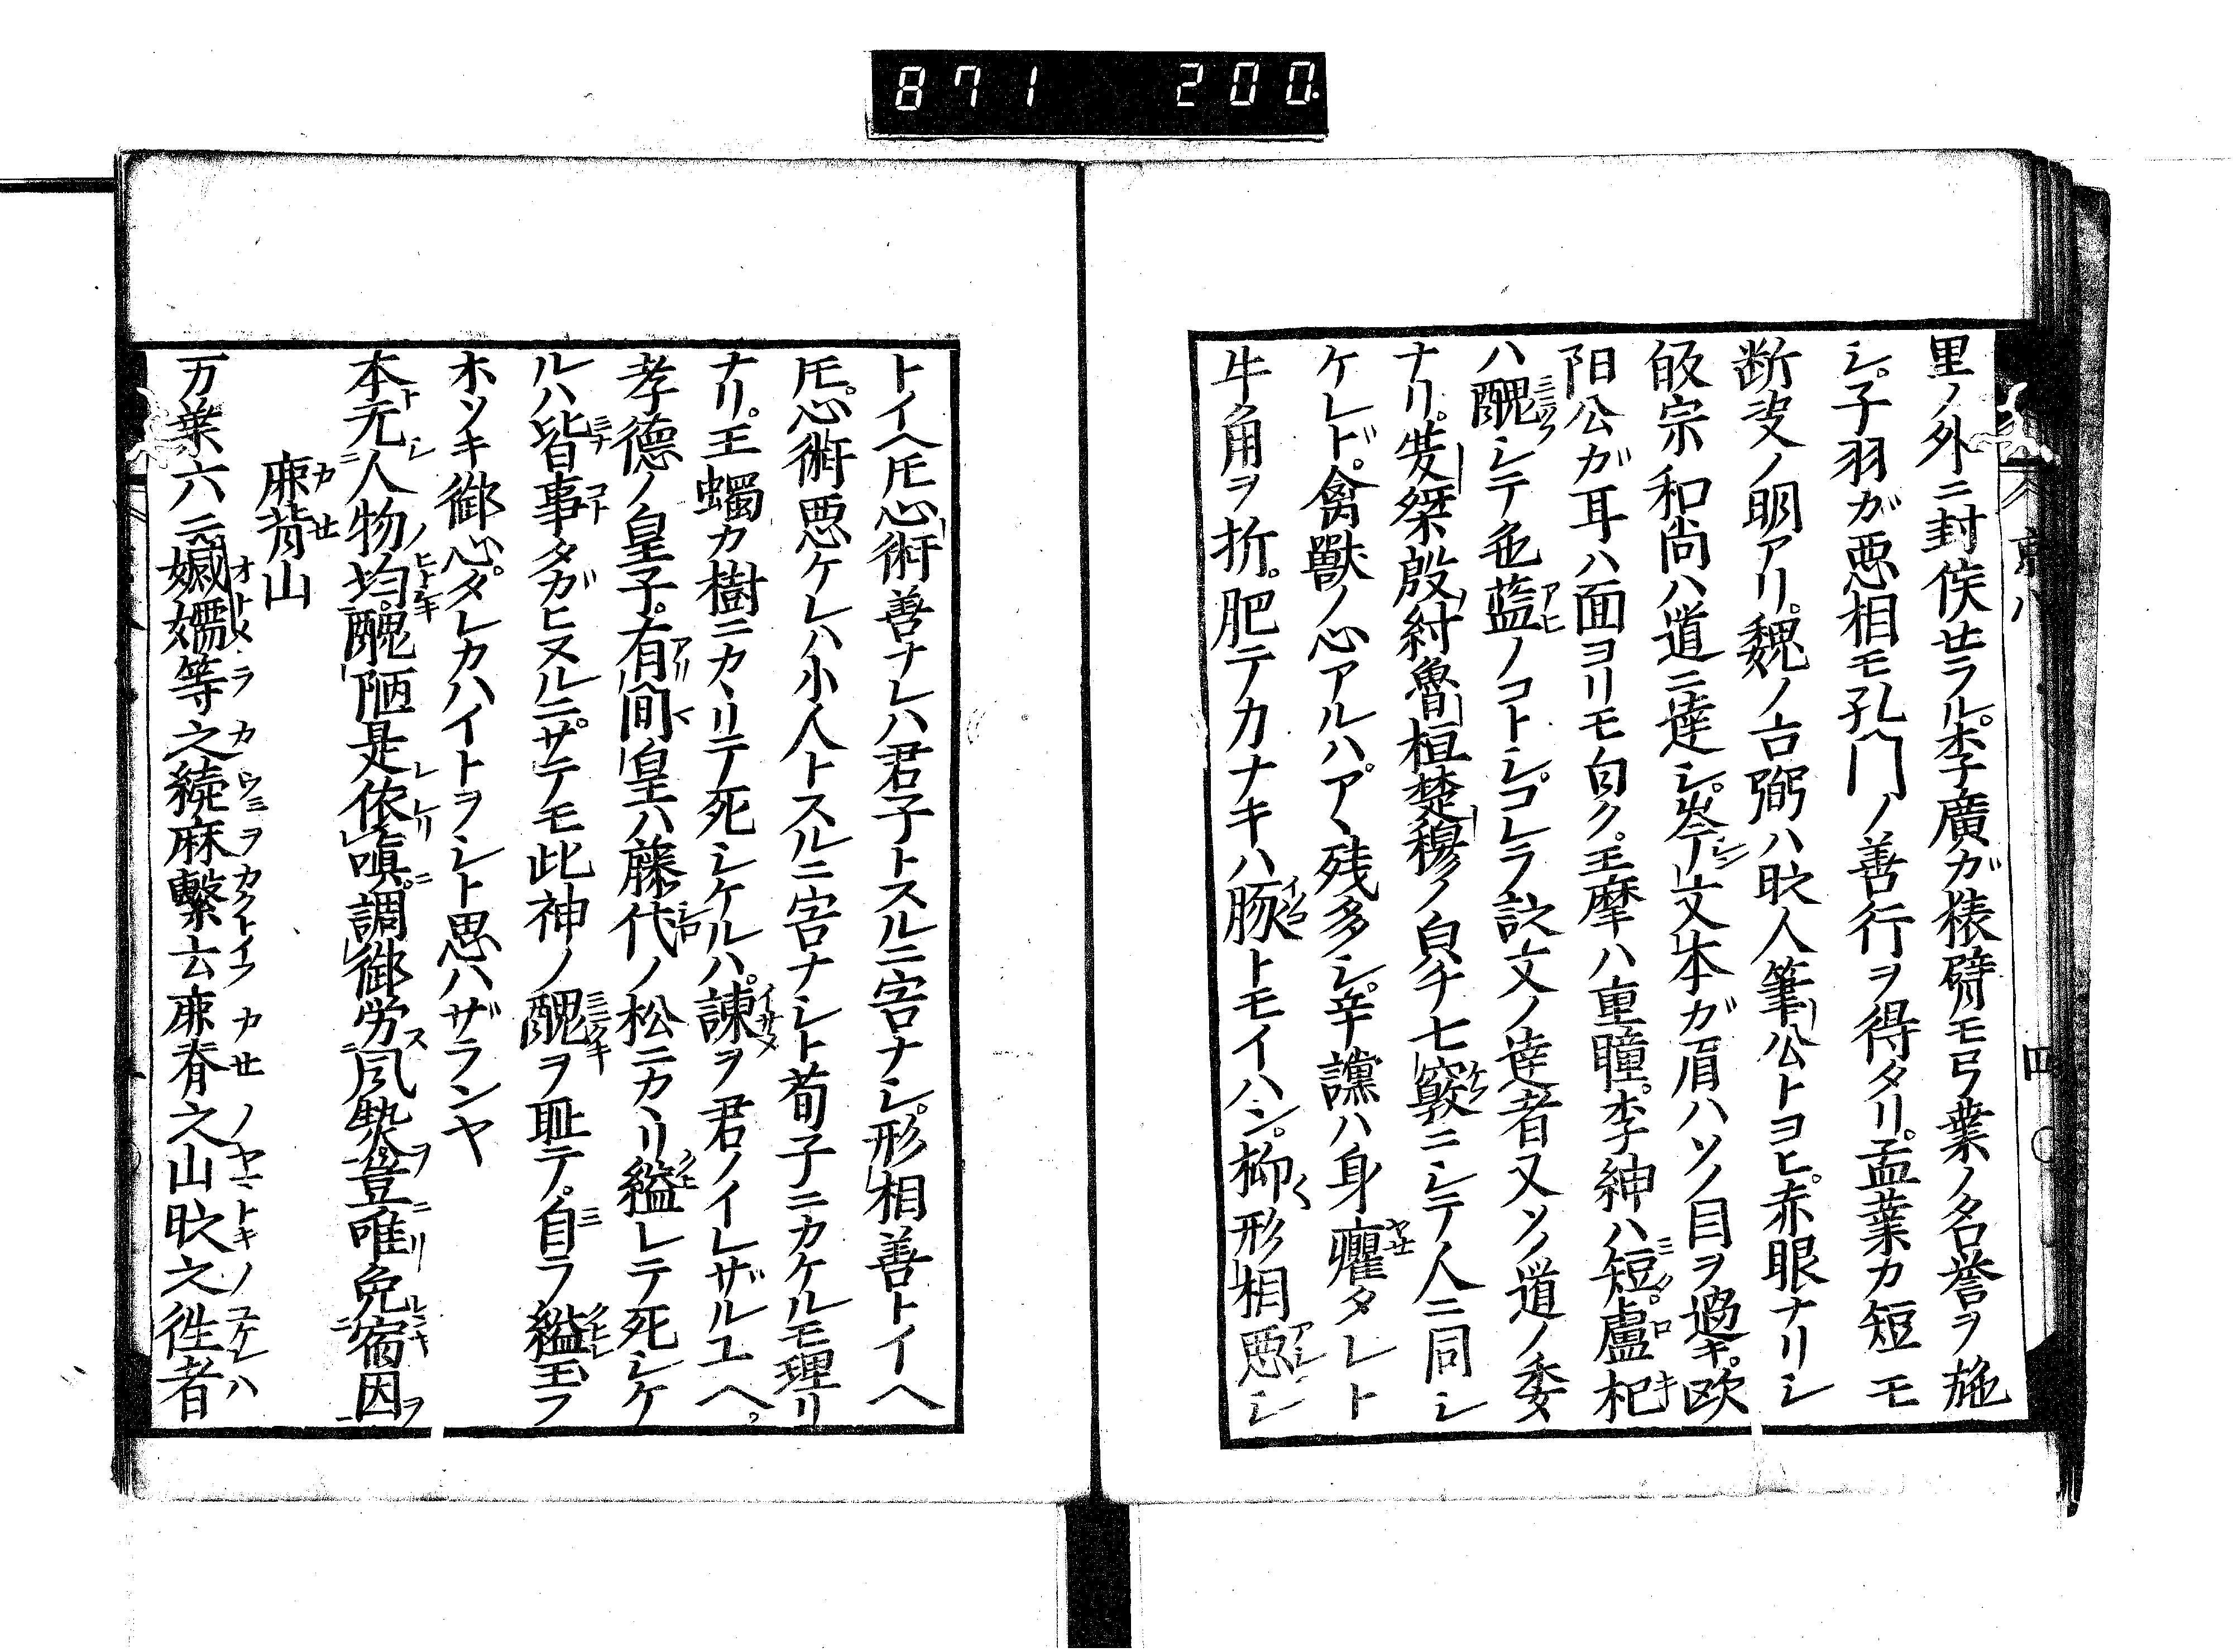 871 200
里ノ外ニ封侯セラル。李廣ガ猿臂モ弓業ノ名誉ヲ施
シ。子羽ガ悪相モ孔門ノ善行ヲ得タリ。孟葉カ短モ
断叓ノ明アリ。魏ノ古弼ハ時人筆公トヨヒ。赤眼ナリシ
皈宗和尚ハ道ニ達シ。岑文本ガ眉ハソノ目ヲ過キ。欧
阳公ガ耳ハ面ヨリモ白ク。王摩ハ重瞳。李紳ハ短。盧杞
ハ醜シテ色藍ノコトシ。コレラ詩文ノ達者又ソノ道ノ委
ナリ。癸桀殷紂魯桓楚穆ノ貞チ七竅ニシテ人ニ同シ
ケレド。禽獸ノ心アルハ。アヽ残多シ。辛讜ハ身癯タレト
牛角ヲ折。肥テカナキハ豚トモイハン。抑形相悪シ
トイヘ𪜈心術善ナレハ君子トスルニ害ナシ。形相善トイヘ
𪜈。心術悪ケレハ小人トスルニ害ナシト荀子ニカケルモ理リ
ナリ。王蠋カ樹ニカヽリテ死シケルハ。諫ヲ君ノイレザルユヘ。
孝德ノ皇子。有間皇ハ藤代ノ松ニカヽリ縊レテ死シケ
ルハ皆事タガヒヌルニ。ザテモ此神ノ醜ヲ耻テ。自ラ縊玉フ
ホソキ御心。タレカハイトヲシト思ハザランヤ
本元人物均。醜陋是依嗔。調御労風埶。豈唯免宿因
麻背山
万葉六云嬢嬬等之續麻繫云麻脊之山時之徃者
京八
四